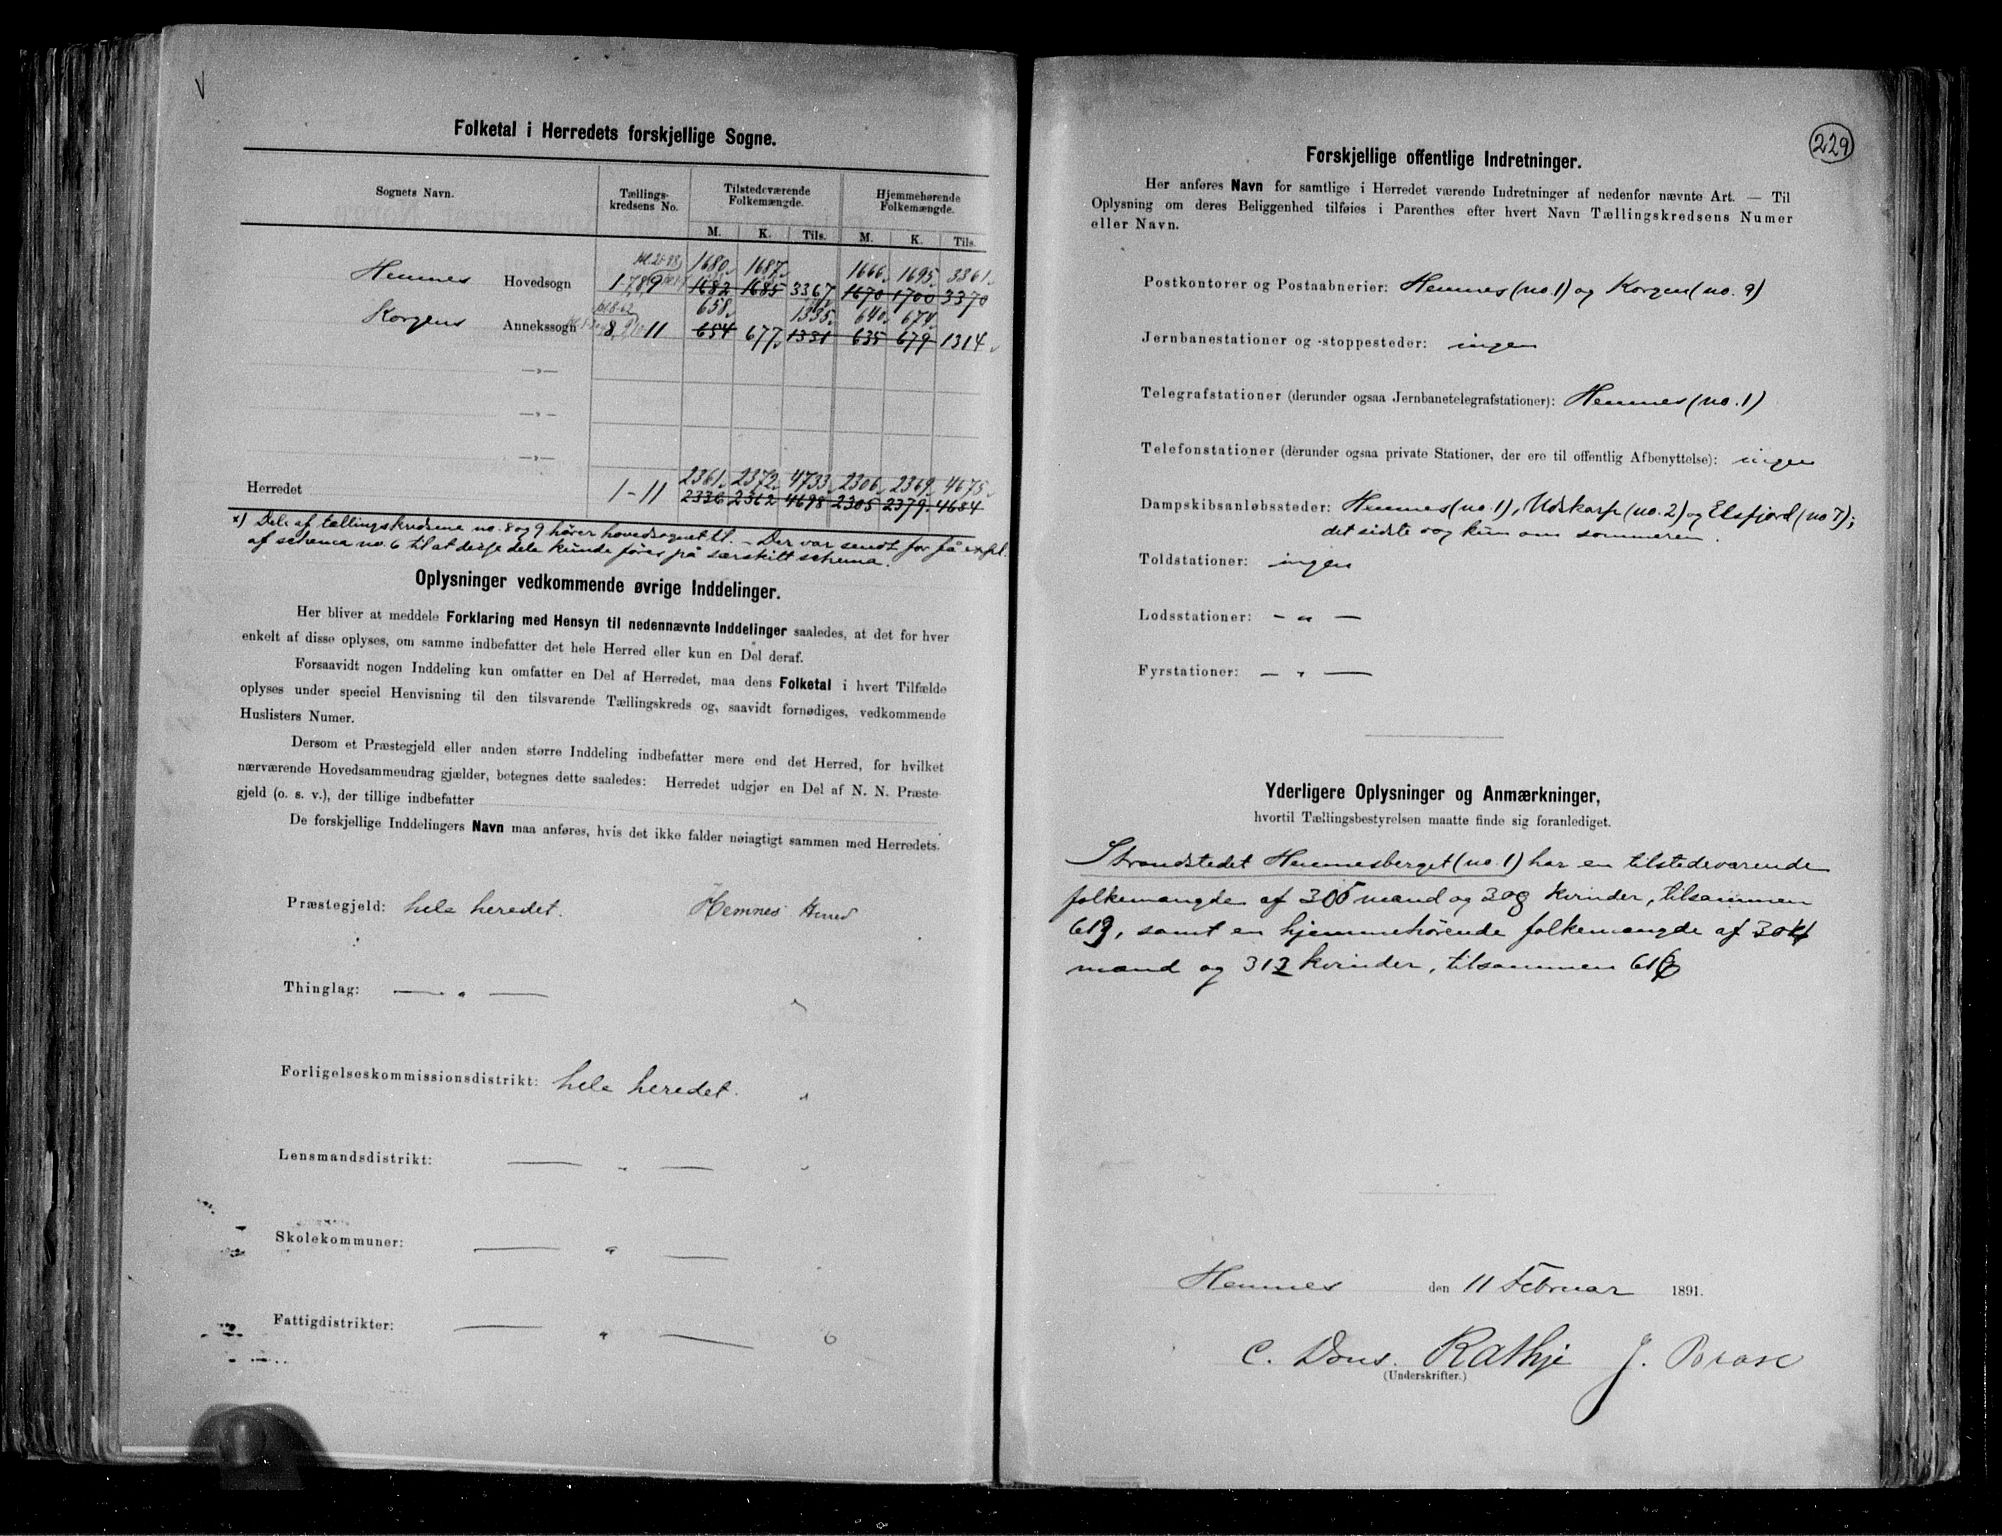 Folketal i Herredets forskjellige Sogne.
Sognets Navn. Tællings- kredsens No. Tilstedeværende Folkemængde. Hjemmehørende Folkemængde.
M. K. Tils. M. K. Tils.
1680 1687 1666 1695 3361
Hemnes Hovedsogn 1-7,8,9 1682 1685 3367 1670 1700 3370
658 1335 640 674
Korgens Annekssogn 8, 9, 10, 11 654 677 1331 635 679 1314
—»—
—»—
—»—
2361 2372 4733 2306 2369 4675
Herredet 1-11 2336 2362 4698 2305 2379 4684
x) Dele af tællingskredsene no. 8 og 9 hører hovedsognet til. – Der var sendt for få expl.
af schema no. 6 til at disse dele kunde føres på særskilt schema.
Oplysninger vedkommende øvrige Inddelinger.
Her bliver at meddele Forklaring med Hensyn til nedennævnte Inddelinger saaledes, at det for hver
enkelt af disse oplyses, om samme indbefatter det hele Herred eller kun en Del deraf.
Forsaavidt nogen Inddeling kun omfatter en Del af Herredet, maa dens Folketal i hvert Tilfælde
oplyses under speciel Henvisning til den tilsvarende Tællingskreds og, saavidt fornødiges, vedkommende
Huslisters Numer.
Dersom et Præstegjeld eller anden større Inddeling indbefatter mere end det Herred, for hvilket
nærværende Hovedsammendrag gjælder, betegnes dette saaledes: Herredet udgjør en Del af N. N. Præste-
gjeld (o. s. v.), der tillige indbefatter
De forskjellige Inddelingers Navn maa anføres, hvis det ikke falder nøiagtigt sammen med Herredets.
Præstegjeld: hele heredet. Hemnes Herred
Thinglag: — „ —
Forligelseskommissionsdistrikt: hele heredet.
Lensmandsdistrikt: — „ —
Skolekommuner: — „ —
Fattigdistrikter: — „ —
229
Forskjellige offentlige Indretninger.
Her anføres Navn for samtlige i Herredet værende Indretninger af nedenfor nævnte Art. — Til
Oplysning om deres Beliggenhed tilføies i Parenthes efter hvert Navn Tællingskredsens Numer
eller Navn.
Postkontorer og Postaabnerier: Hemnes (no. 1) og Korgen (no. 9)
Jernbanestationer og -stoppesteder: ingen
Telegrafstationer (derunder ogsaa Jernbanetelegrafstationer): Hemnes (no. 1)
Telefonstationer (derunder ogsaa private Stationer, der ere til offentlig Afbenyttelse): ingen
Dampskibsanløbssteder: Hemnes (no. 1), Udskarp (no. 2) og Elsfjord (no 7);
det sidste dog kun om sommeren.
Toldstationer: ingen
Lodsstationer: — „ —
Fyrstationer: — „ —
Yderligere Oplysninger og Anmærkninger,
hvortil Tællingsbestyrelsen maatte finde sig foranlediget.
Strandstedet Hemnesberget (no. 1) har en tilstedeværende
folkemængde af 305 mænd og 308 kvinder, tilsammen
613, samt en hjemmehørende folkemængde af 304
mænd og 312 kvinder, tilsammen 616
Hemnes den 11 Februar 1891.
C. Dons. Rathje J. Brase
(Underskrifter.)